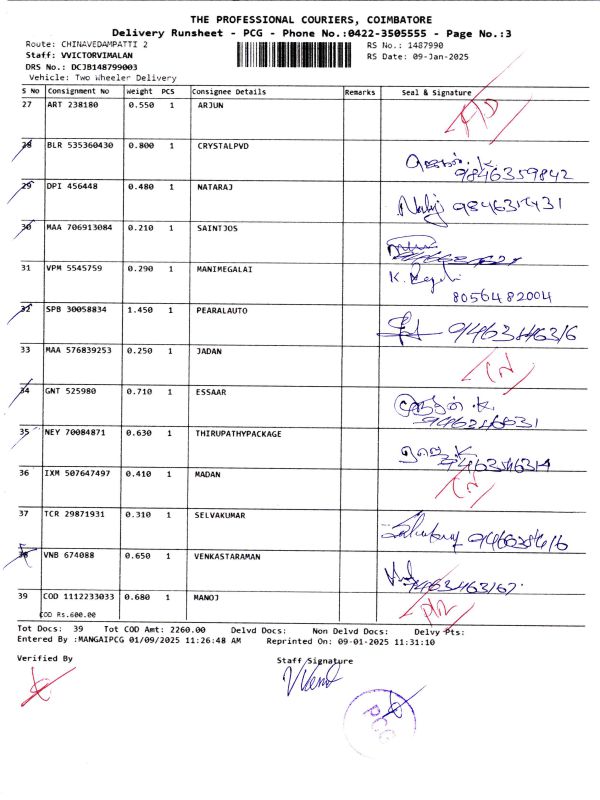 THE PROFESSIONAL COURIERS, COIMBATORE
Delivery Runsheet - PCG - Phone No.:0422-3505555 - Page No.:3
Route: CHINAVEDAMPATTI 2
RS No.: 1487990
Staff: VVICTORVIMALAN
RS Date: 09-Jan-2025
DRS No.: DCJB148799003
Vehicle: Two Wheeler Delivery
S No Consignment No Weight PCS Consignee Details Remarks Seal & Signature
27 ART 238180 0.550 1 ARJUN
28 BLR 535360430 0.800 1 CRYSTALPVD
9846359842
29 DPI 456448 0.480 1 NATARAJ
30 MAA 706913084 0.210 1 SAINTJOS
31 VPM 5545759 0.290 1 MANIMEGALAI
8056482004
32 SPB 30058834 1.450 1 PEARALAUTO
33 MAA 576839253 0.250 1 JADAN
34 GNT 525980 0.710 1 ESSAAR
35 NEY 70084871 0.630 1 THIRUPATHYPACKAGE
36 IXM 507647497 0.410 1 MADAN
37 TCR 29871931 0.310 1 SELVAKUMAR
38 VNB 674088 0.650 1 VENKASTARAMAN
39 COD 1112233033 0.680 1 MANOJ
COD Rs.600.00
Tot Docs: 39 Tot COD Amt: 2260.00 Delvd Docs: Non Delvd Docs: Delvy Pts:
Entered By :MANGAIPCG 01/09/2025 11:26:48 AM Reprinted On: 09-01-2025 11:31:10
Verified By
Staff Signature
PCG